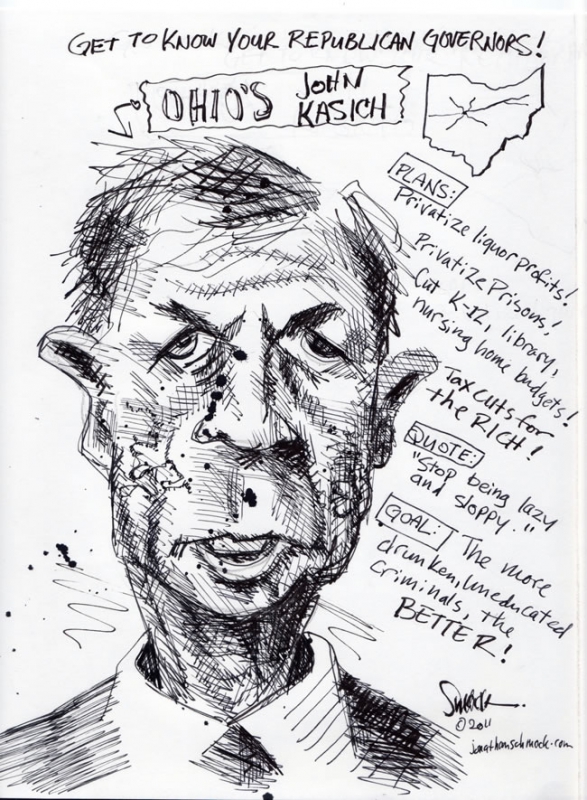 GET TO KNOW YOUR REPUBLICAN GOVERNORS!
OHIO'S JOHN
KASICH
PLANS:
Privatize liquor profits!
Privatize Prisons!
Cut K-12, library,
nursing home budgets!
Tax cuts for
the RICH!
QUOTE:
"Stop being lazy
and sloppy."
GOAL: The more
drunken, uneducated
criminals, the
BETTER!
©2011
jonathanschmock.com